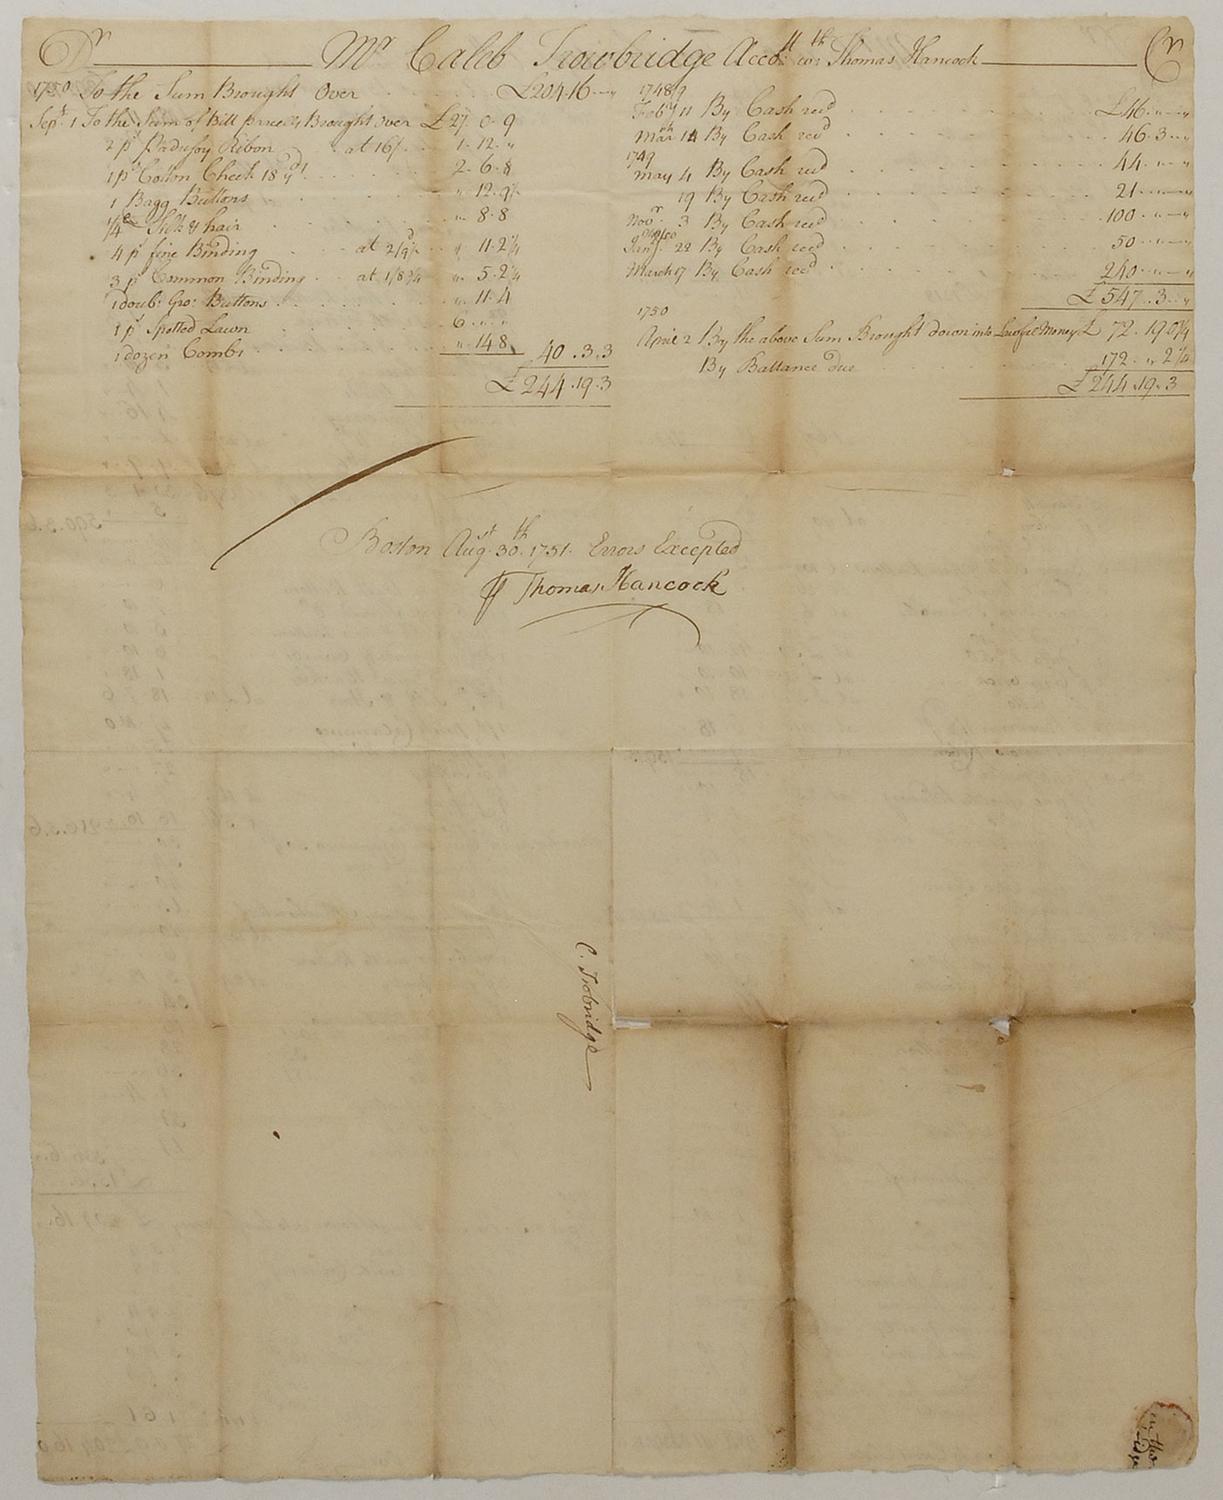 Dr Mr Caleb Trowbridge Accott wth Thomas Hancock Cr
1750 To the Sum Brought Over £204.16.„
Sept. 1 To the Sum of Bill parcells Brought Over £27.0.9
2 ps Padusoy Ribon at 16/ 1.12.„
1 ps Cotton Check 18 yd 2.6.8
1 Bagg Buttons „.12.9
Silk & hair „.8.8
4 ps fine Binding at 2/9 „.11.2¼
3 ps Common Binding at 1/8¾ „.5.2¼
1 doub: Gro: Buttons „.11.4
1 ps Spotted Lawn 6.„.„
1 dozen Combs „.14.8 40.3.3
£244.19.3
1748/9
Feby 11 By Cash recd £46.„.„
Mar 14 By Cash recd 46.3.„
1749
May 4 By Cash recd 44.„.„
19 By Cash recd 21.„.„
Novr 3 By Cash recd 100.„.„
Jany 22 By Cash recd 50.„.„
March 17 By Cash recd 240.„.„
£547.3.„
1750
April 2 By the above Sum Brought down into Lawful Money £72.19.0¾
By Ballance due 172.„.2¼
£244.19.3
Boston Augst 30th 1751. Errors Excepted
Thomas Hancock
C. Trobridge